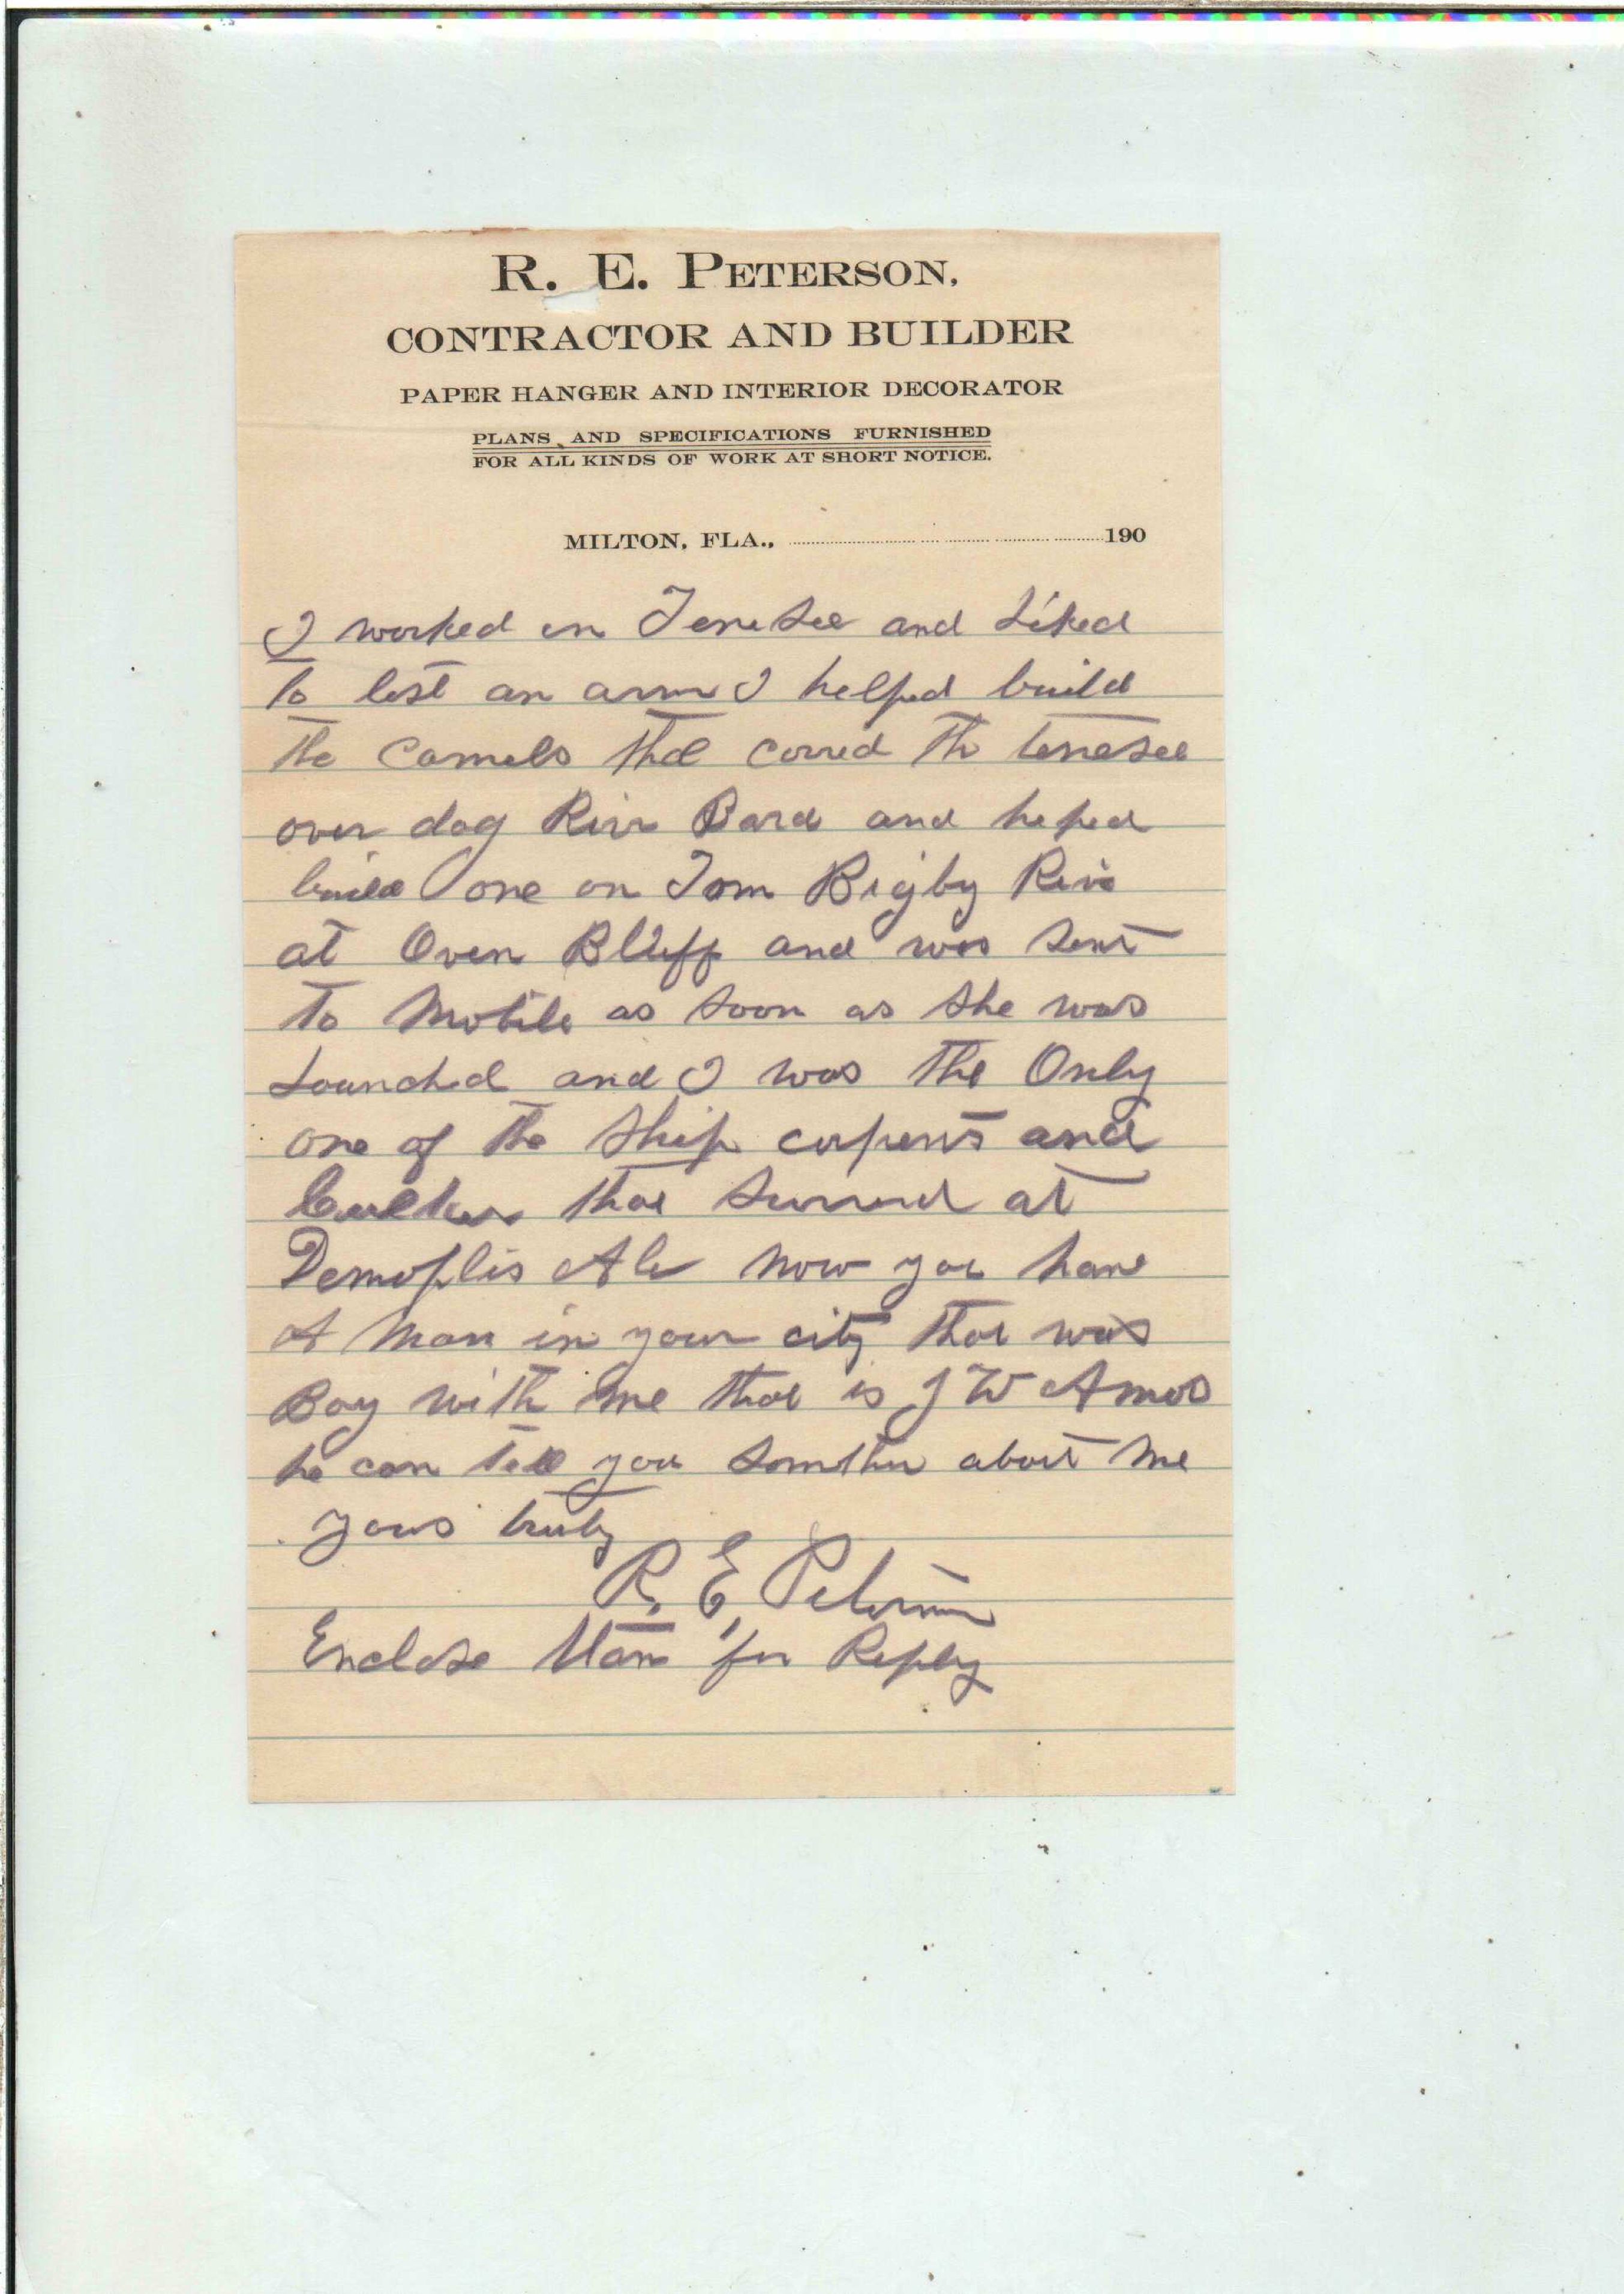 R. E. PETERSON,
CONTRACTOR AND BUILDER
PAPER HANGER AND INTERIOR DECORATOR
PLANS AND SPECIFICATIONS FURNISHED
FOR ALL KINDS OF WORK AT SHORT NOTICE.
MILTON, FLA., 190
I worked on Tenesee and Liked
to lost an arm I helped build
the Camels that corred th tenesee
over dog Rivr Bard and heped
build one on Tom Bigby Rivr
at Oven Bluff and was sent
to Mobile as soon as she was
Launched and I was the Only
one of the Ship carpents and
that at
Demoplis Ala now you have
A Man in your city that was
Boy with me that is J W Amos
he can tell you somthin about me
yours truly
R. E Peterson
Enclose for Reply